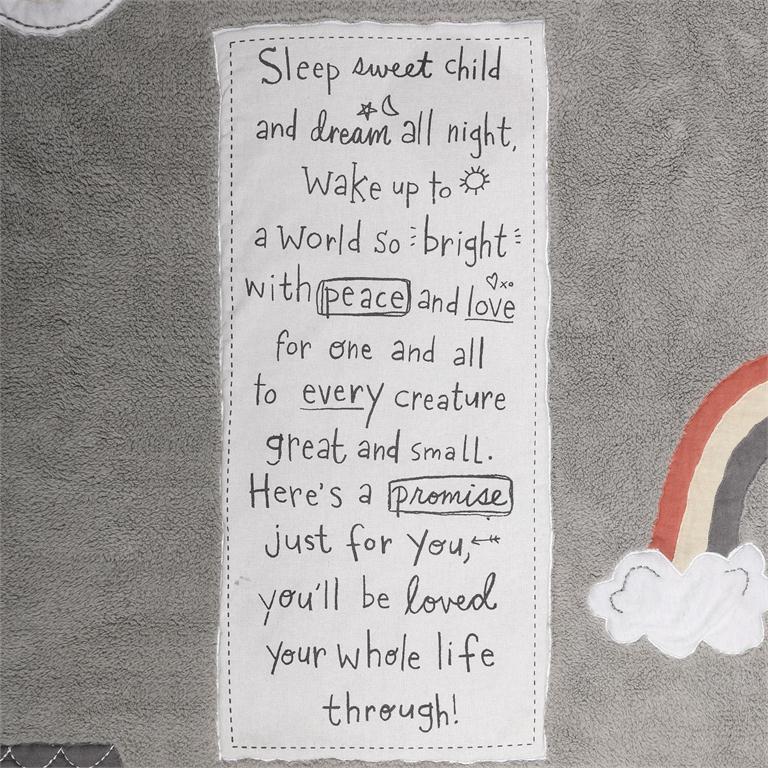 Sleep sweet child
and dream all night,
Wake up to
a World so bright
with peace and love
xo
for one and all
to every creature
great and small.
Here's a promise
just for you,
you'll be loved
your whole life
through!